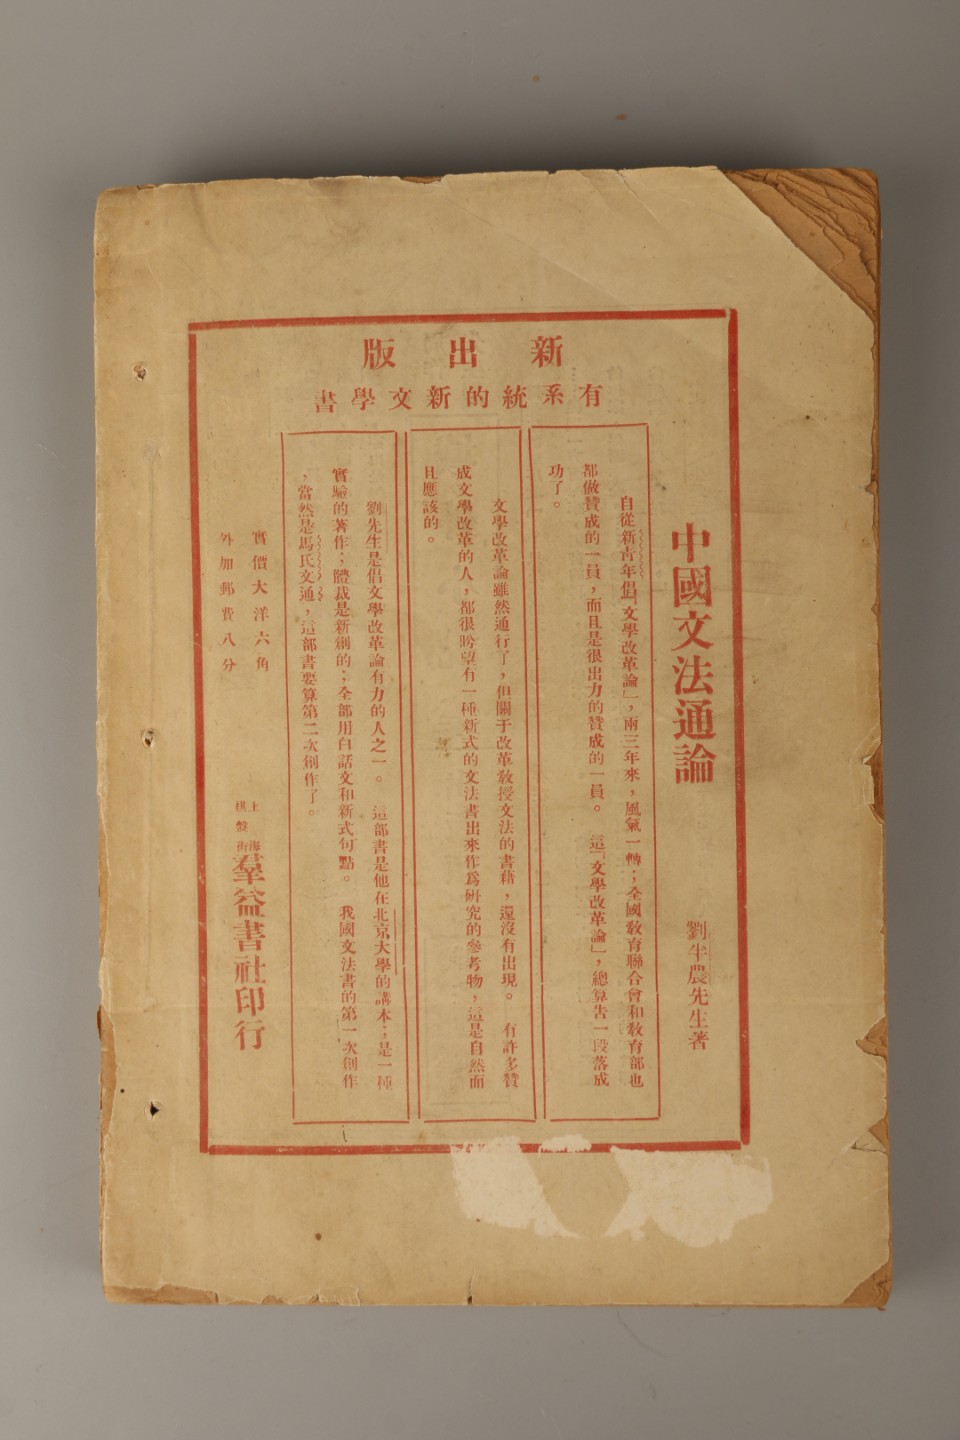 新出版
有系統的新文學書
中國文法通論
劉半農先生著
自從新青年倡「文學改革論」，兩三年來，風氣一轉；全國教育聯合會和教育部也
都做贊成的一員，而且是很出力的贊成的一員。這「文學改革論」，總算告一段落成
功了。
文學改革論雖然通行了，但關于改革教授文法的書藉，還沒有出現。有許多贊
成文學改革的人，都很盼望有一種新式的文法書出來作爲硏究的參考物，這是自然而
且應該的。
劉先生是倡文學改革論有力的人之一。這部書是他在北京大學的講本；是一種
實驗的著作；體裁是新剏的；全部用白話文和新式句點。我國文法書的第一次創作
，當然是馬氏文通，這部書要算第二次創作了。
實價大洋六角
外加郵費八分
上海
棋盤街
羣益書社印行